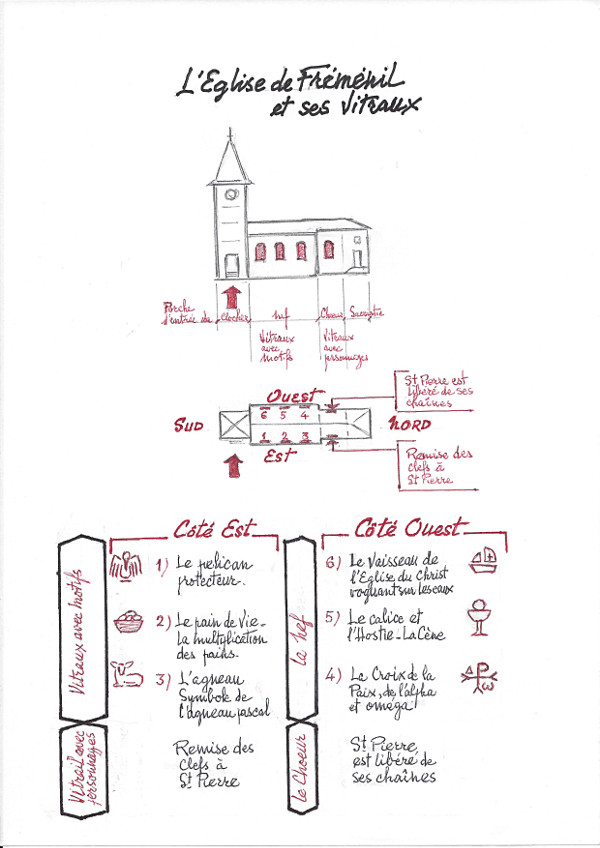 L'Eglise de Fréménil
et ses vitraux
Porche
d'entrée du
clocher
nef
Choeur
Sacristie
Vitraux
avec
motifs
Vitraux
avec
personnages
Ouest
6 5 4
SUD
NORD
1 2 3
Est
St Pierre est
libéré de ses
chaînes
Remise des
clefs à
St Pierre
Côté Est
Vitraux avec motifs
1) Le pelican
protecteur.
2) Le pain de Vie_
La multiplication
des pains.
3) L'agneau
Symbole de
l'agneau pascal
Vitrail avec
personnages
Remise des
Clefs à
St Pierre
Côté Ouest
la nef
6) Le Vaisseau de
l'Eglise du Christ
voguant sur les eaux
5) Le calice et
l'Hostie_La Cène
4) La Croix de la
Paix, de l'alpha
et omega
le Choeur
St Pierre,
est libéré de
ses chaînes